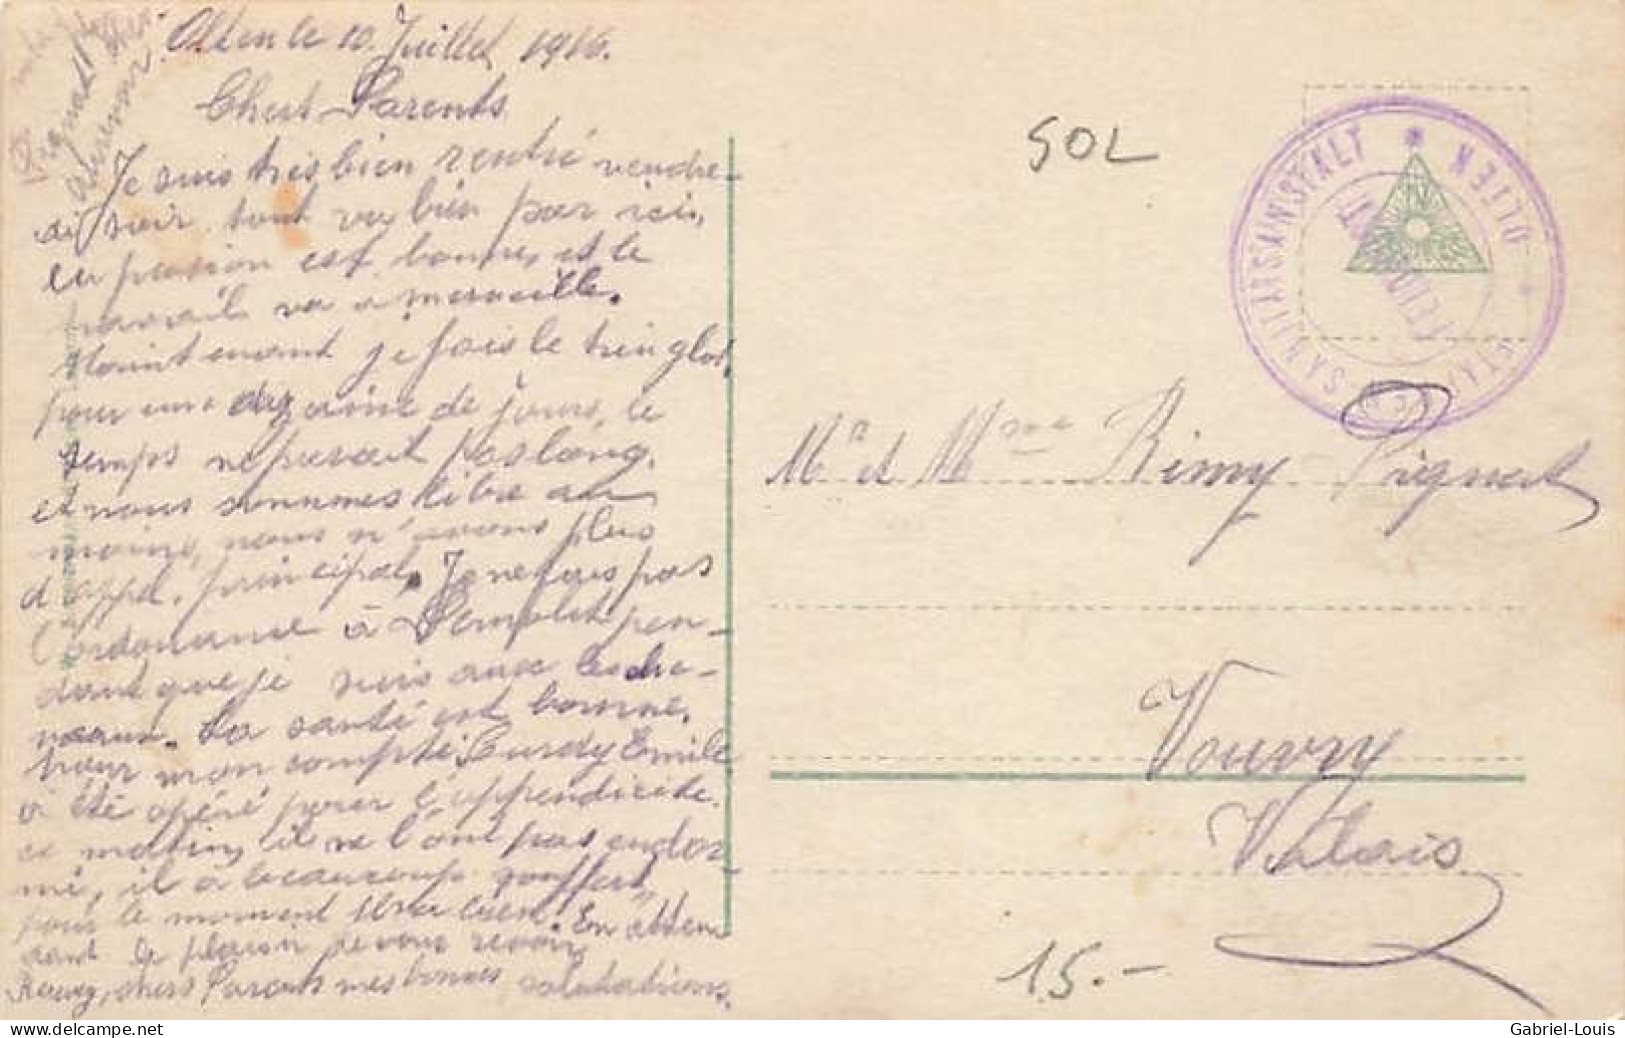 Olten le 10 Juillet 1916.
Chers Parents
Je suis très bien rentré vendre-
di soir, tout va bien par ici,
la pension est bonne, et le
travail va a merveille.
Maintenant je fais le tringlot,
pour une dizaine de jours, le
temps ne parait pas long,
et nous sommes libre au
moins, nous n'avons plus
d'appel principal. Je ne fais pas
l'ordonance à pen-
dant que je suis aux
La santé est bonne,
pour mon compte, Curdy Emile
a été opéré pour l'appendicite
ce matin, il ne l'ont pas endor-
mi, il a beaucoup souffert,
pour le moment il va bien. En atten-
dant le plaisir de vous revoir,
Recevez, chers Parents mes bonnes salutations.
Pignat
SOL
ETAPPEN-SANITÄTSANSTALT * OLTEN *
FELDPOST
Mr et Mme Rémy Pignat
Vouvry
Valais
15.-
Gabriel-Louis